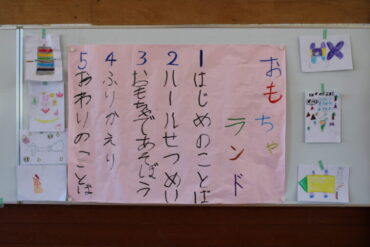 おもちゃ
ランド
1 はじめのことば
2 ルールせつめい
3 おもちゃであそぼう
4 ふりかえり
5 おわりのことば